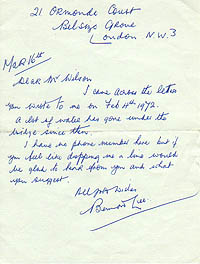 21 Ormonde Court
Belsize Grove
London N.W.3
Mar 16th
Dear Mr Wilson
I came across the letter
you wrote to me on Feb 4th 1972.
A lot of water has gone under the
bridge since then.
I have no phone number here but if
you feel like dropping me a line would
be glad to hear from you and what
you suggest.
All good wishes
Bernard Lee